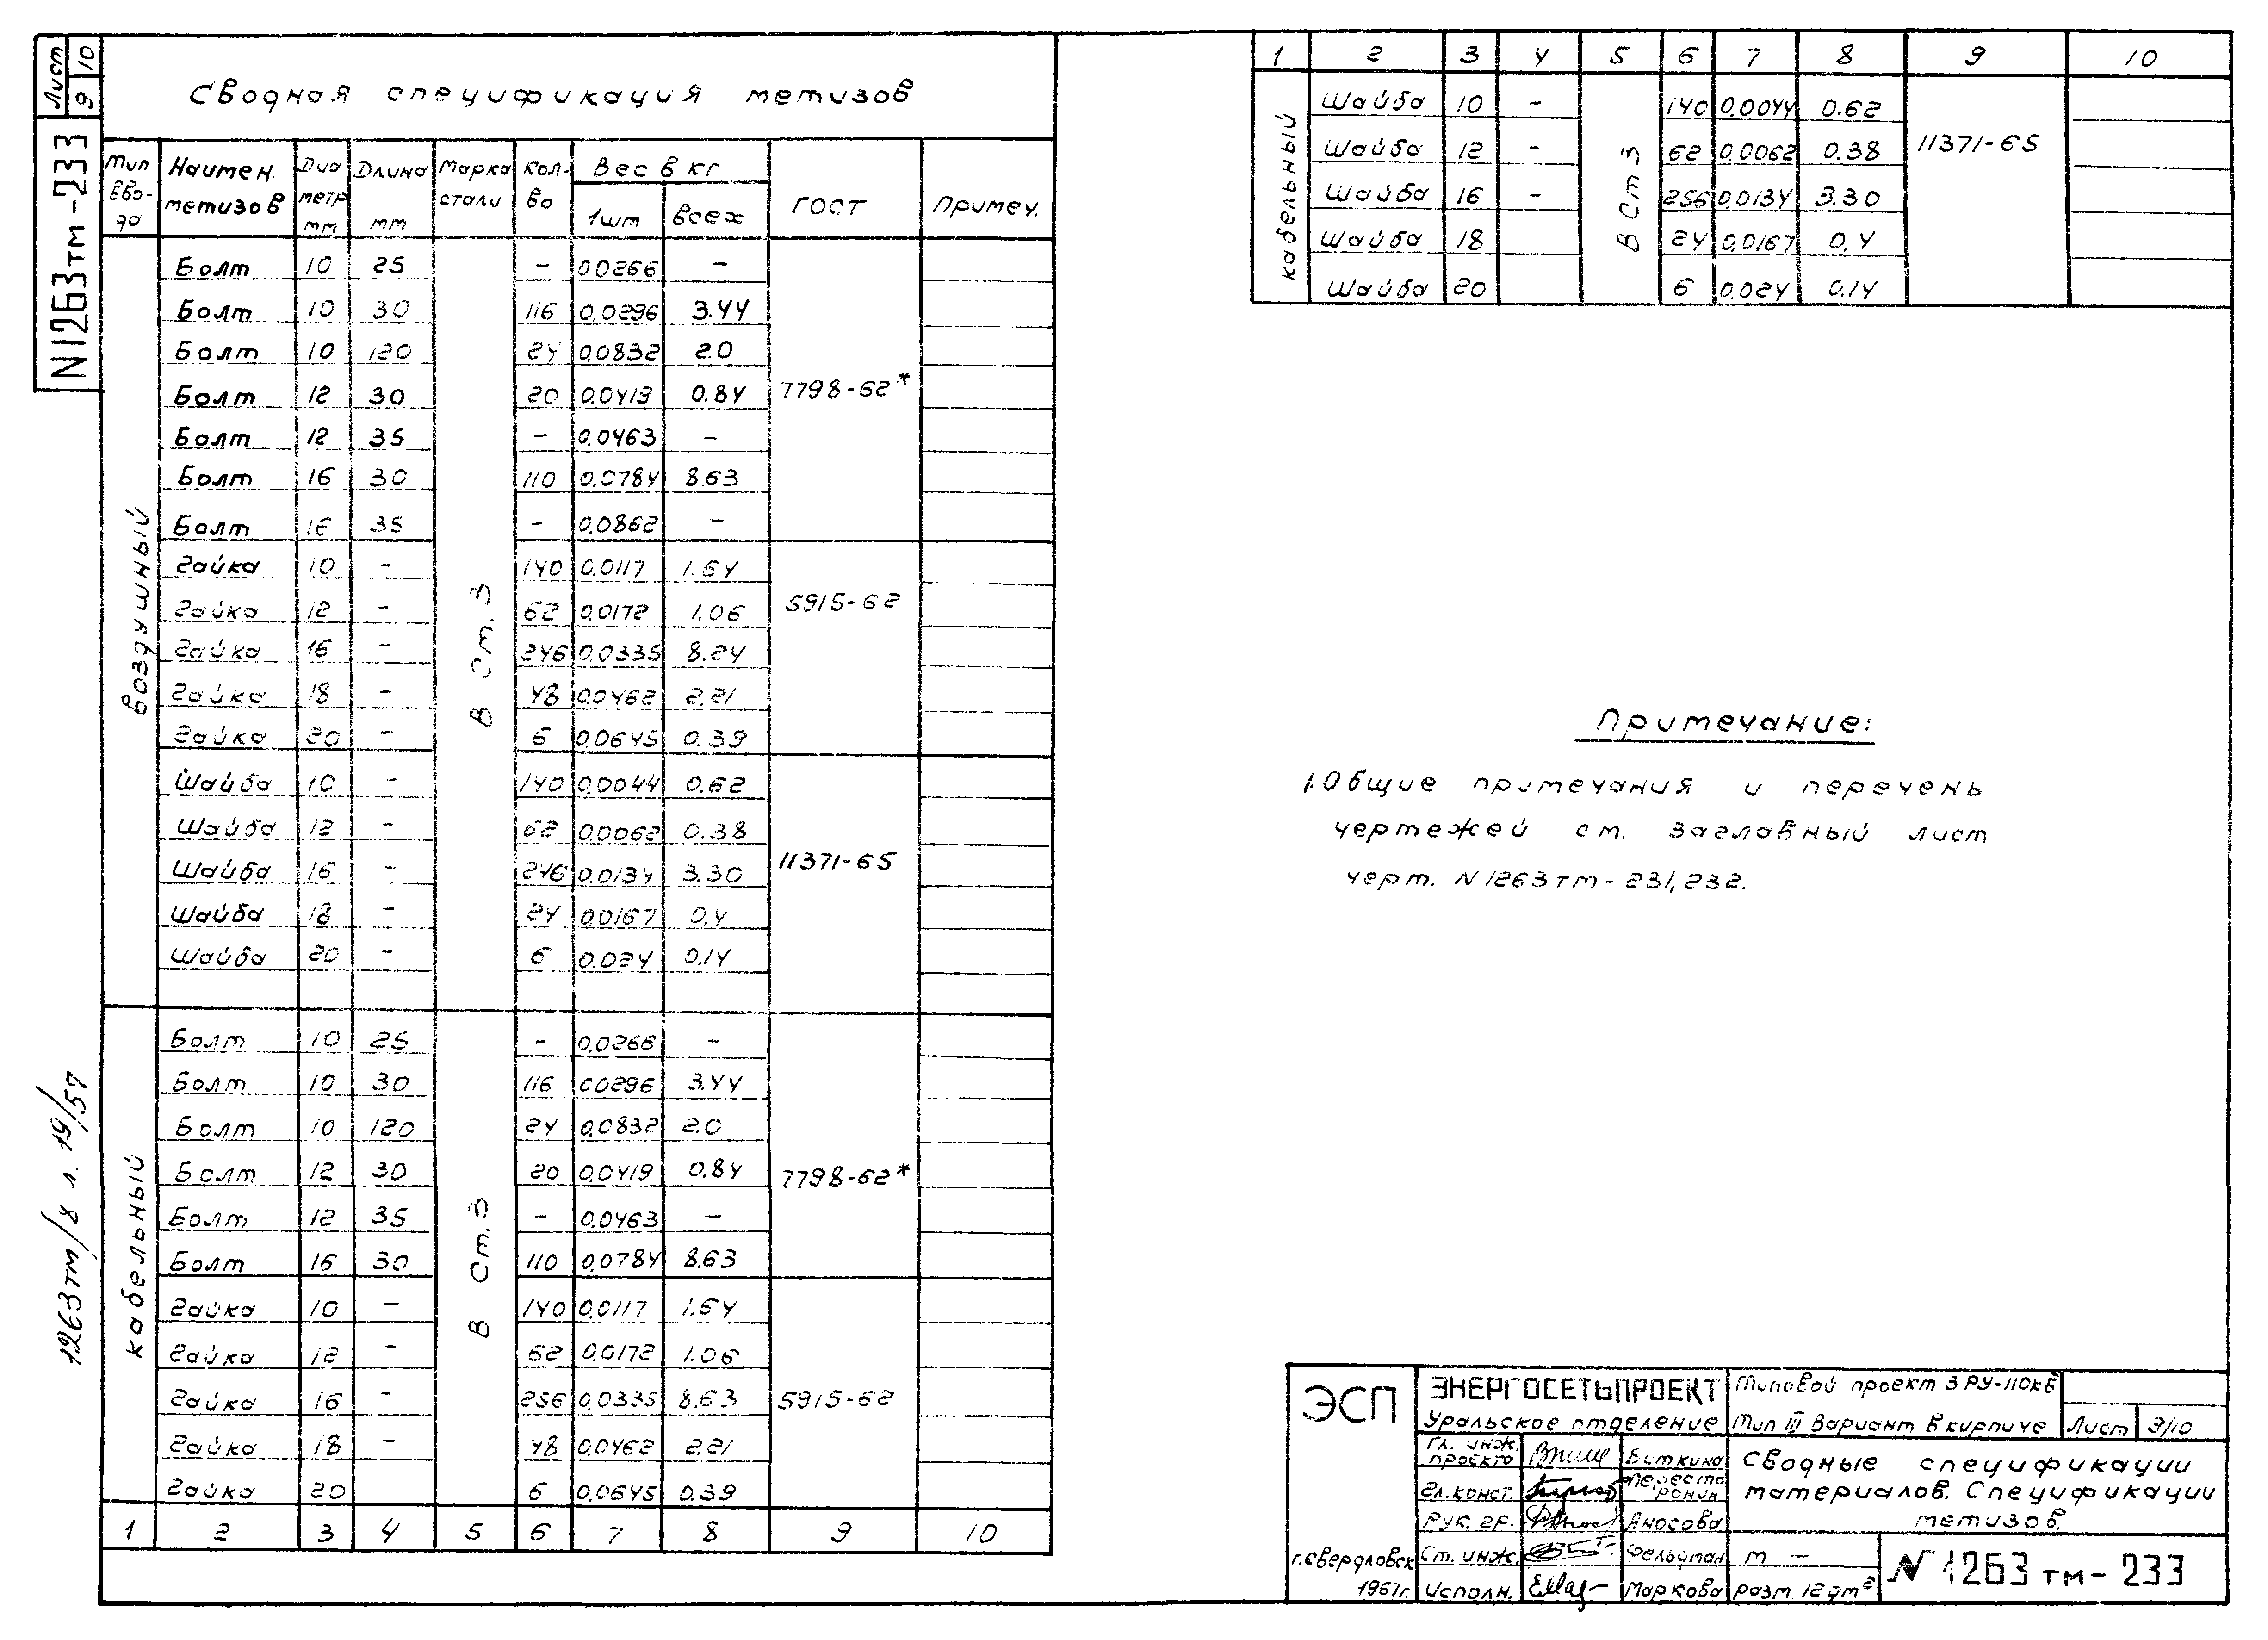 Лист 9 10
N1263тм-233
Сводная спецификация метизов
Тип Вво-да | Наимен. метизов | Диаметр мм | Длина мм | Марка стали | Кол-во | Вес в кг 1шт | всех | ГОСТ | Примеч.
воздушный
В Ст.3
Болт 10 25 - 0.0266 -
Болт 10 30 116 0.0296 3.44
Болт 10 120 24 0.0832 2.0
Болт 12 30 20 0.0419 0.84
7798-62*
Болт 12 35 - 0.0463 -
Болт 16 30 110 0.0784 8.63
Болт 16 35 - 0.0862 -
Гайка 10 - 140 0.0117 1.64
Гайка 12 - 62 0.0172 1.06
5915-62
Гайка 16 - 246 0.0335 8.24
Гайка 18 - 48 0.0462 2.21
Гайка 20 - 6 0.0645 0.39
Шайба 10 - 140 0.0044 0.62
Шайба 12 - 62 0.0062 0.38
Шайба 16 - 246 0.0134 3.30
11371-65
Шайба 18 - 24 0.0167 0.4
Шайба 20 - 6 0.024 0.14
кабельный
В Ст.3
Болт 10 25 - 0.0266 -
Болт 10 30 116 0.0296 3.44
Болт 10 120 24 0.0832 2.0
Болт 12 30 20 0.0419 0.84
7798-62*
Болт 12 35 - 0.0463 -
Болт 16 30 110 0.0784 8.63
Гайка 10 - 140 0.0117 1.64
Гайка 12 - 62 0.0172 1.06
Гайка 16 - 256 0.0335 8.63
5915-62
Гайка 18 - 48 0.0462 2.21
Гайка 20 6 0.0645 0.39
1 2 3 4 5 6 7 8 9 10
1263тм/8 л. 19/57
1 2 3 4 5 6 7 8 9 10
кабельный
В Ст 3
Шайба 10 - 140 0.0044 0.62
Шайба 12 - 62 0.0062 0.38
11371-65
Шайба 16 - 256 0.0134 3.30
Шайба 18 24 0.0167 0.4
Шайба 20 6 0.024 0.14
Примечание:
1. Общие примечания и перечень
чертежей см. заглавный лист
черт. N 1263тм-231,232.
ЭСП
ЭНЕРГОСЕТЬПРОЕКТ
Уральское отделение
Типовой проект ЗРУ-110кв
Тип III Вариант в кирпиче Лист 9/10
Гл. инж. проекта Виткина
Гл. конст.
Рук. гр. Аносова
Ст. инж. Фельдман
Исполн. Маркова
Сводные спецификации
материалов. Спецификации
метизов.
г. Свердловск
1967г.
м —
разм. 12дм²
N 1263тм-233